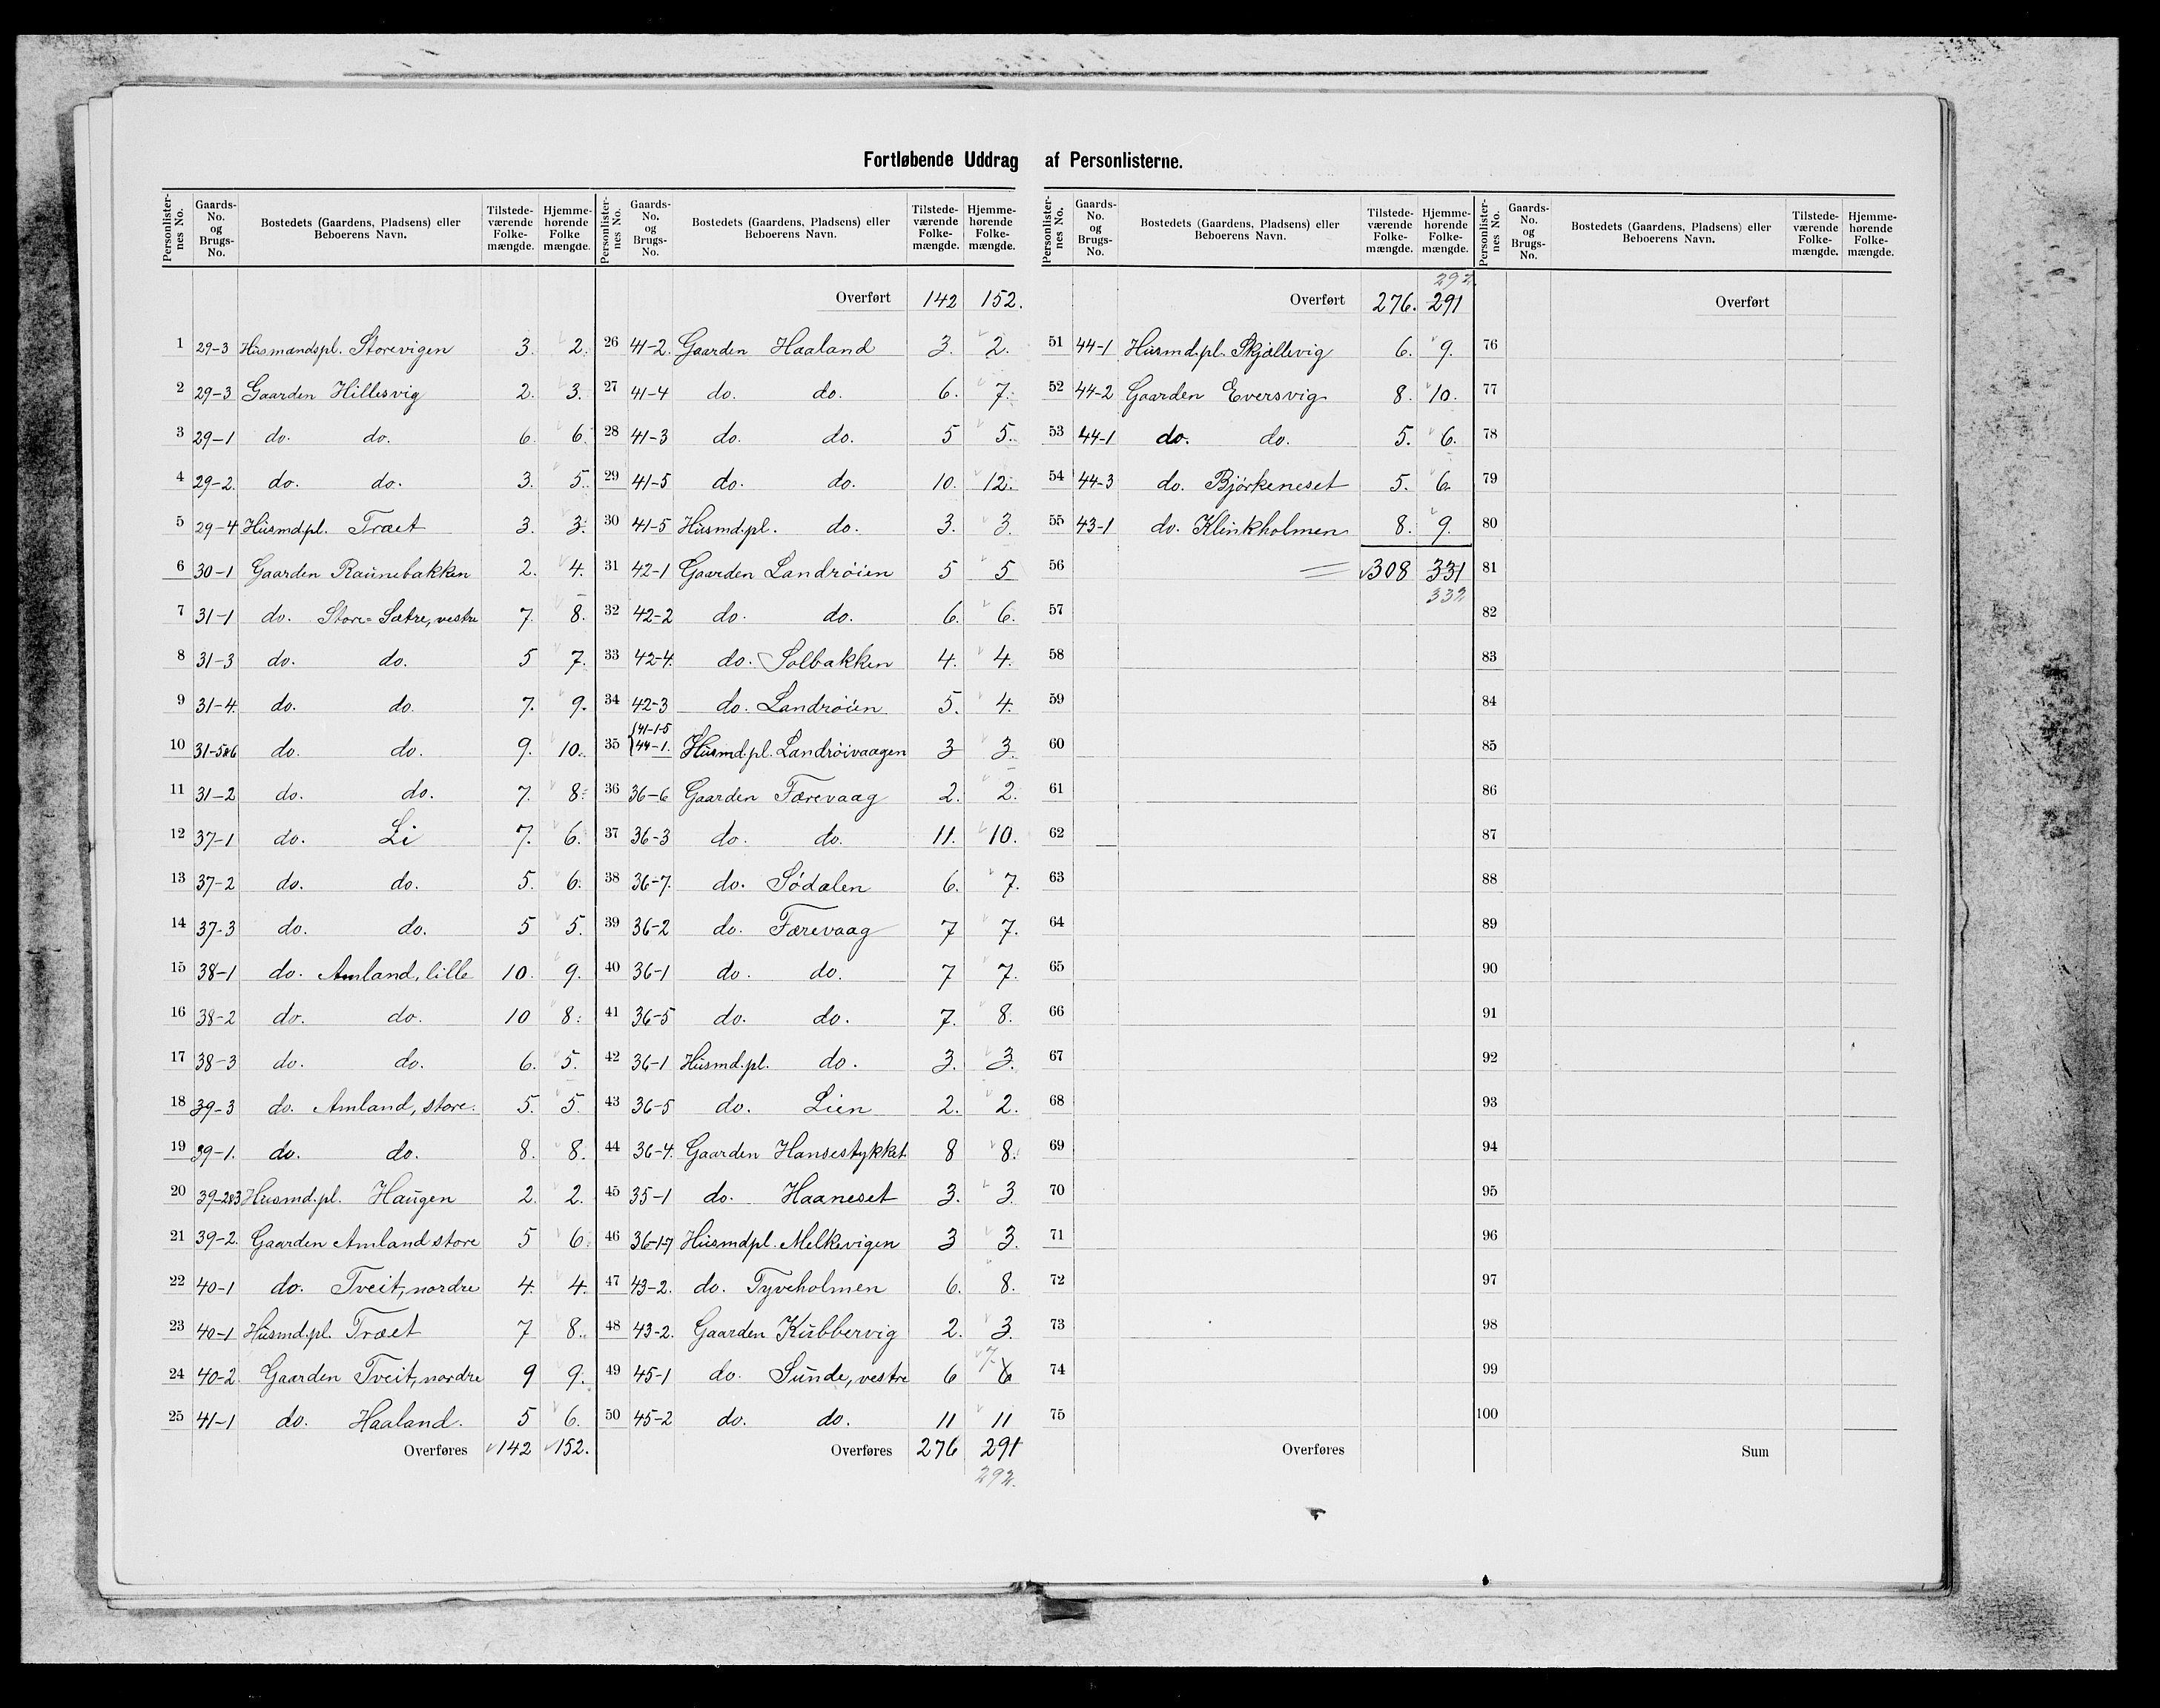 Fortløbende Uddrag af Personlisterne.
Personlister-nes No. | Gaards-No. og Brugs-No. | Bostedets (Gaardens, Pladsens) eller Beboerens Navn. | Tilstede-værende Folke-mængde. | Hjemme-hørende Folke mængde.
1 29-3 Husmandspl. Storevigen 3. 2.
2 29-3 Gaarden Hillesvig 2. 3.
3 29-1 do. do. 6. 6.
4 29-2. do. do. 3. 5.
5 29-4 Husmd.pl. Træet 3. 3.
6 30-1 Gaarden Raunebakken 2. 4.
7 31-1 do. Store-Sætre, vestre 7. 8.
8 31-3 do. do. 5 7.
9 31-4. do. do. 7. 9.
10 31-5&6 do. do. 9. 10.
11 31-2 do. do. 7. 8.
12 37-1 do. Li 7. 6.
13 37-2 do. do. 5. 6.
14 37-3 do. do. 5 5.
15 38-1 do. Amland, lille 10. 9.
16 38-2 do. do. 10 8.
17 38-3 do. do. 6. 5.
18 39-3 do. Amland, store. 5. 5.
19 39-1. do. do. 8. 8.
20 39-2&3 Husmd.pl. Haugen 2. 2.
21 39-2. Gaarden Amland store 5 6.
22 40-1 do. Tveit, nordre 4. 4.
23 40-1 Husmd.pl. Træet 7 8.
24 40-2 Gaarden Tveit, nordre 9 9.
25 41-1 do. Haaland. 5 6.
Overføres 142 152.
Personlister-nes No. | Gaards-No. og Brugs-No. | Bostedets (Gaardens, Pladsens) eller Beboerens Navn. | Tilstede-værende Folke-mængde. | Hjemme-hørende Folke-mængde.
Overført 142 152.
26 41-2. Gaarden Haaland 3. 2.
27 41-4 do. do. 6. 7.
28 41-3 do. do. 5 5.
29 41-5 do. do. 10. 12.
30 41-5 Husmd.pl. do. 3. 3.
31 42-1 Gaarden Landröien 5 5
32 42-2 do. do. 6. 6.
33 42-4. do. Solbakken 4. 4.
34 42-3 do. Landröien 5. 4.
35 {41-1-5 44-1. Husmd.pl. Landröivaagen 3 3.
36 36-6 Gaarden Færevaag 2. 2.
37 36-3 do. do. 11. 10.
38 36-7. do. Södalen 6. 7.
39 36-2 do. Færevaag 7 7.
40 36-1 do. do. 7 7.
41 36-5 do. do. 7. 8.
42 36-1 Husmd.pl. do. 3. 3.
43 36-5 do. Lien 2. 2.
44 36-4. Gaarden Hansestykket 8 8.
45 35-1 do. Haaneset 3. 3
46 36-1-7 Husmdpl. Melkevigen 3 3.
47 43-2. do. Tyveholmen 6. 8.
48 43-2. Gaarden Kubbervig 2. 3.
49 45-1 do. Sunde, vestre 6 7. 6
50 45-2 do. do. 11 11
Overføres 276 291
292.
Personlister-nes No. | Gaards-No. og Brugs-No. | Bostedets (Gaardens, Pladsens) eller Beboerens Navn. | Tilstede-værende Folke-mængde. | Hjemme-hørende Folke-mængde.
292
Overført 276. 291
51 44-1 Husmd.pl. Skjællevig 6. 9.
52 44-2 Gaarden Eversvig 8. 10.
53 44-1 do. do. 5. 6.
54 44-3 do. Björkeneset 5. 6.
55 43-1 do. Klinkholmen 8. 9.
56 308 331
332
57
58
59
60
61
62
63
64
65
66
67
68
69
70
71
72
73
74
75
Overføres
Personlister-nes No. | Gaards-No. og Brugs-No. | Bostedets (Gaardens, Pladsens) eller Beboerens Navn. | Tilstede-værende Folke-mængde. | Hjemme-hørende Folke-mængde.
Overført
76
77
78
79
80
81
82
83
84
85
86
87
88
89
90
91
92
93
94
95
96
97
98
99
100
Sum